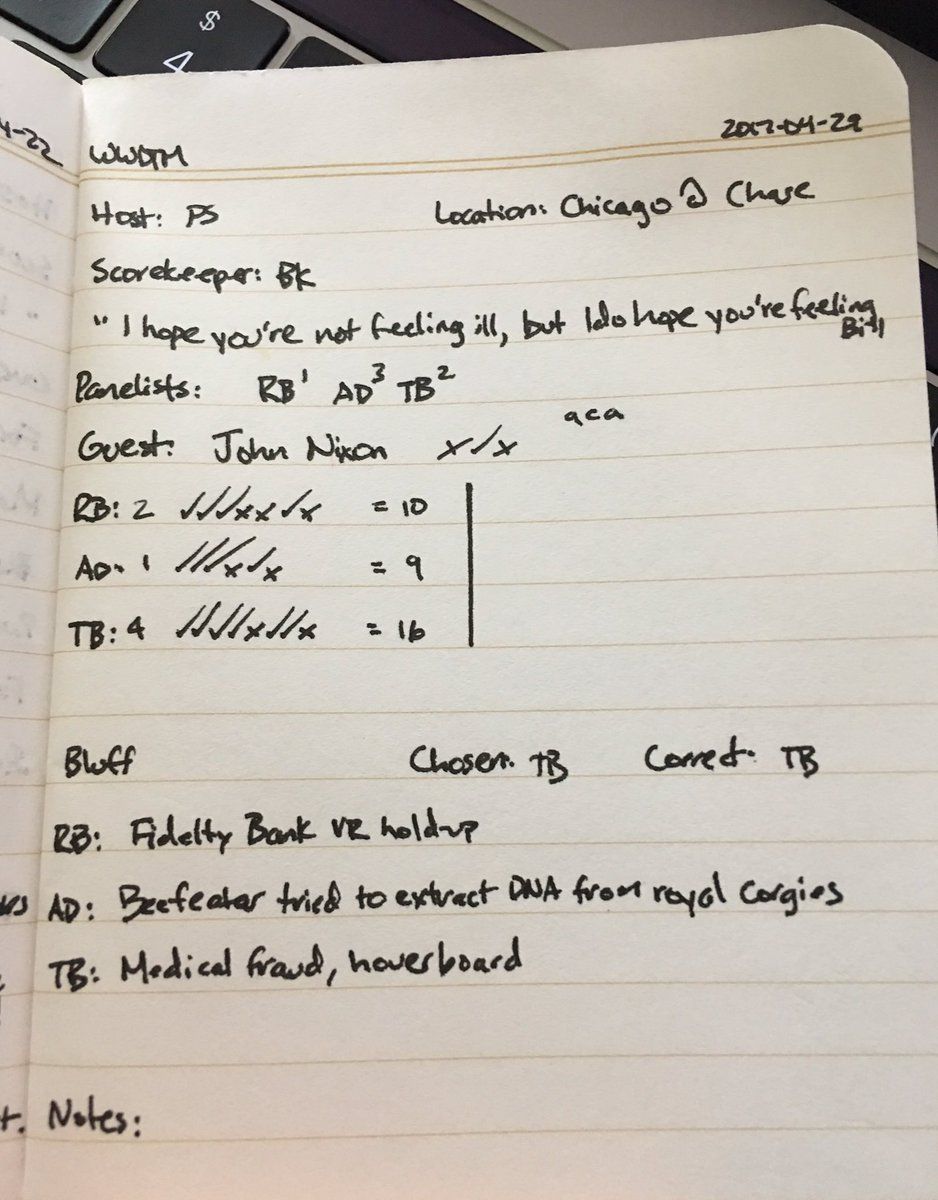 $
4
4-22
WWDTM 2017-04-29
Host: PS Location: Chicago @ Chase
Scorekeeper: BK
" I hope you're not feeling ill, but I do hope you're feeling
Bill
Panelists: RB¹ AD³ TB²
Guest: John Nixon x✓x aca
RB: 2 ✓✓✓xx✓x = 10
AD: 1 ✓✓✓x✓x = 9
TB: 4 ✓✓✓✓x✓✓x = 16
Bluff Chosen: TB Correct: TB
RB: Fidelty Bank VR hold-up
AD: Beefeater tried to extract DNA from royal Corgies
TB: Medical fraud, hoverboard
Notes: